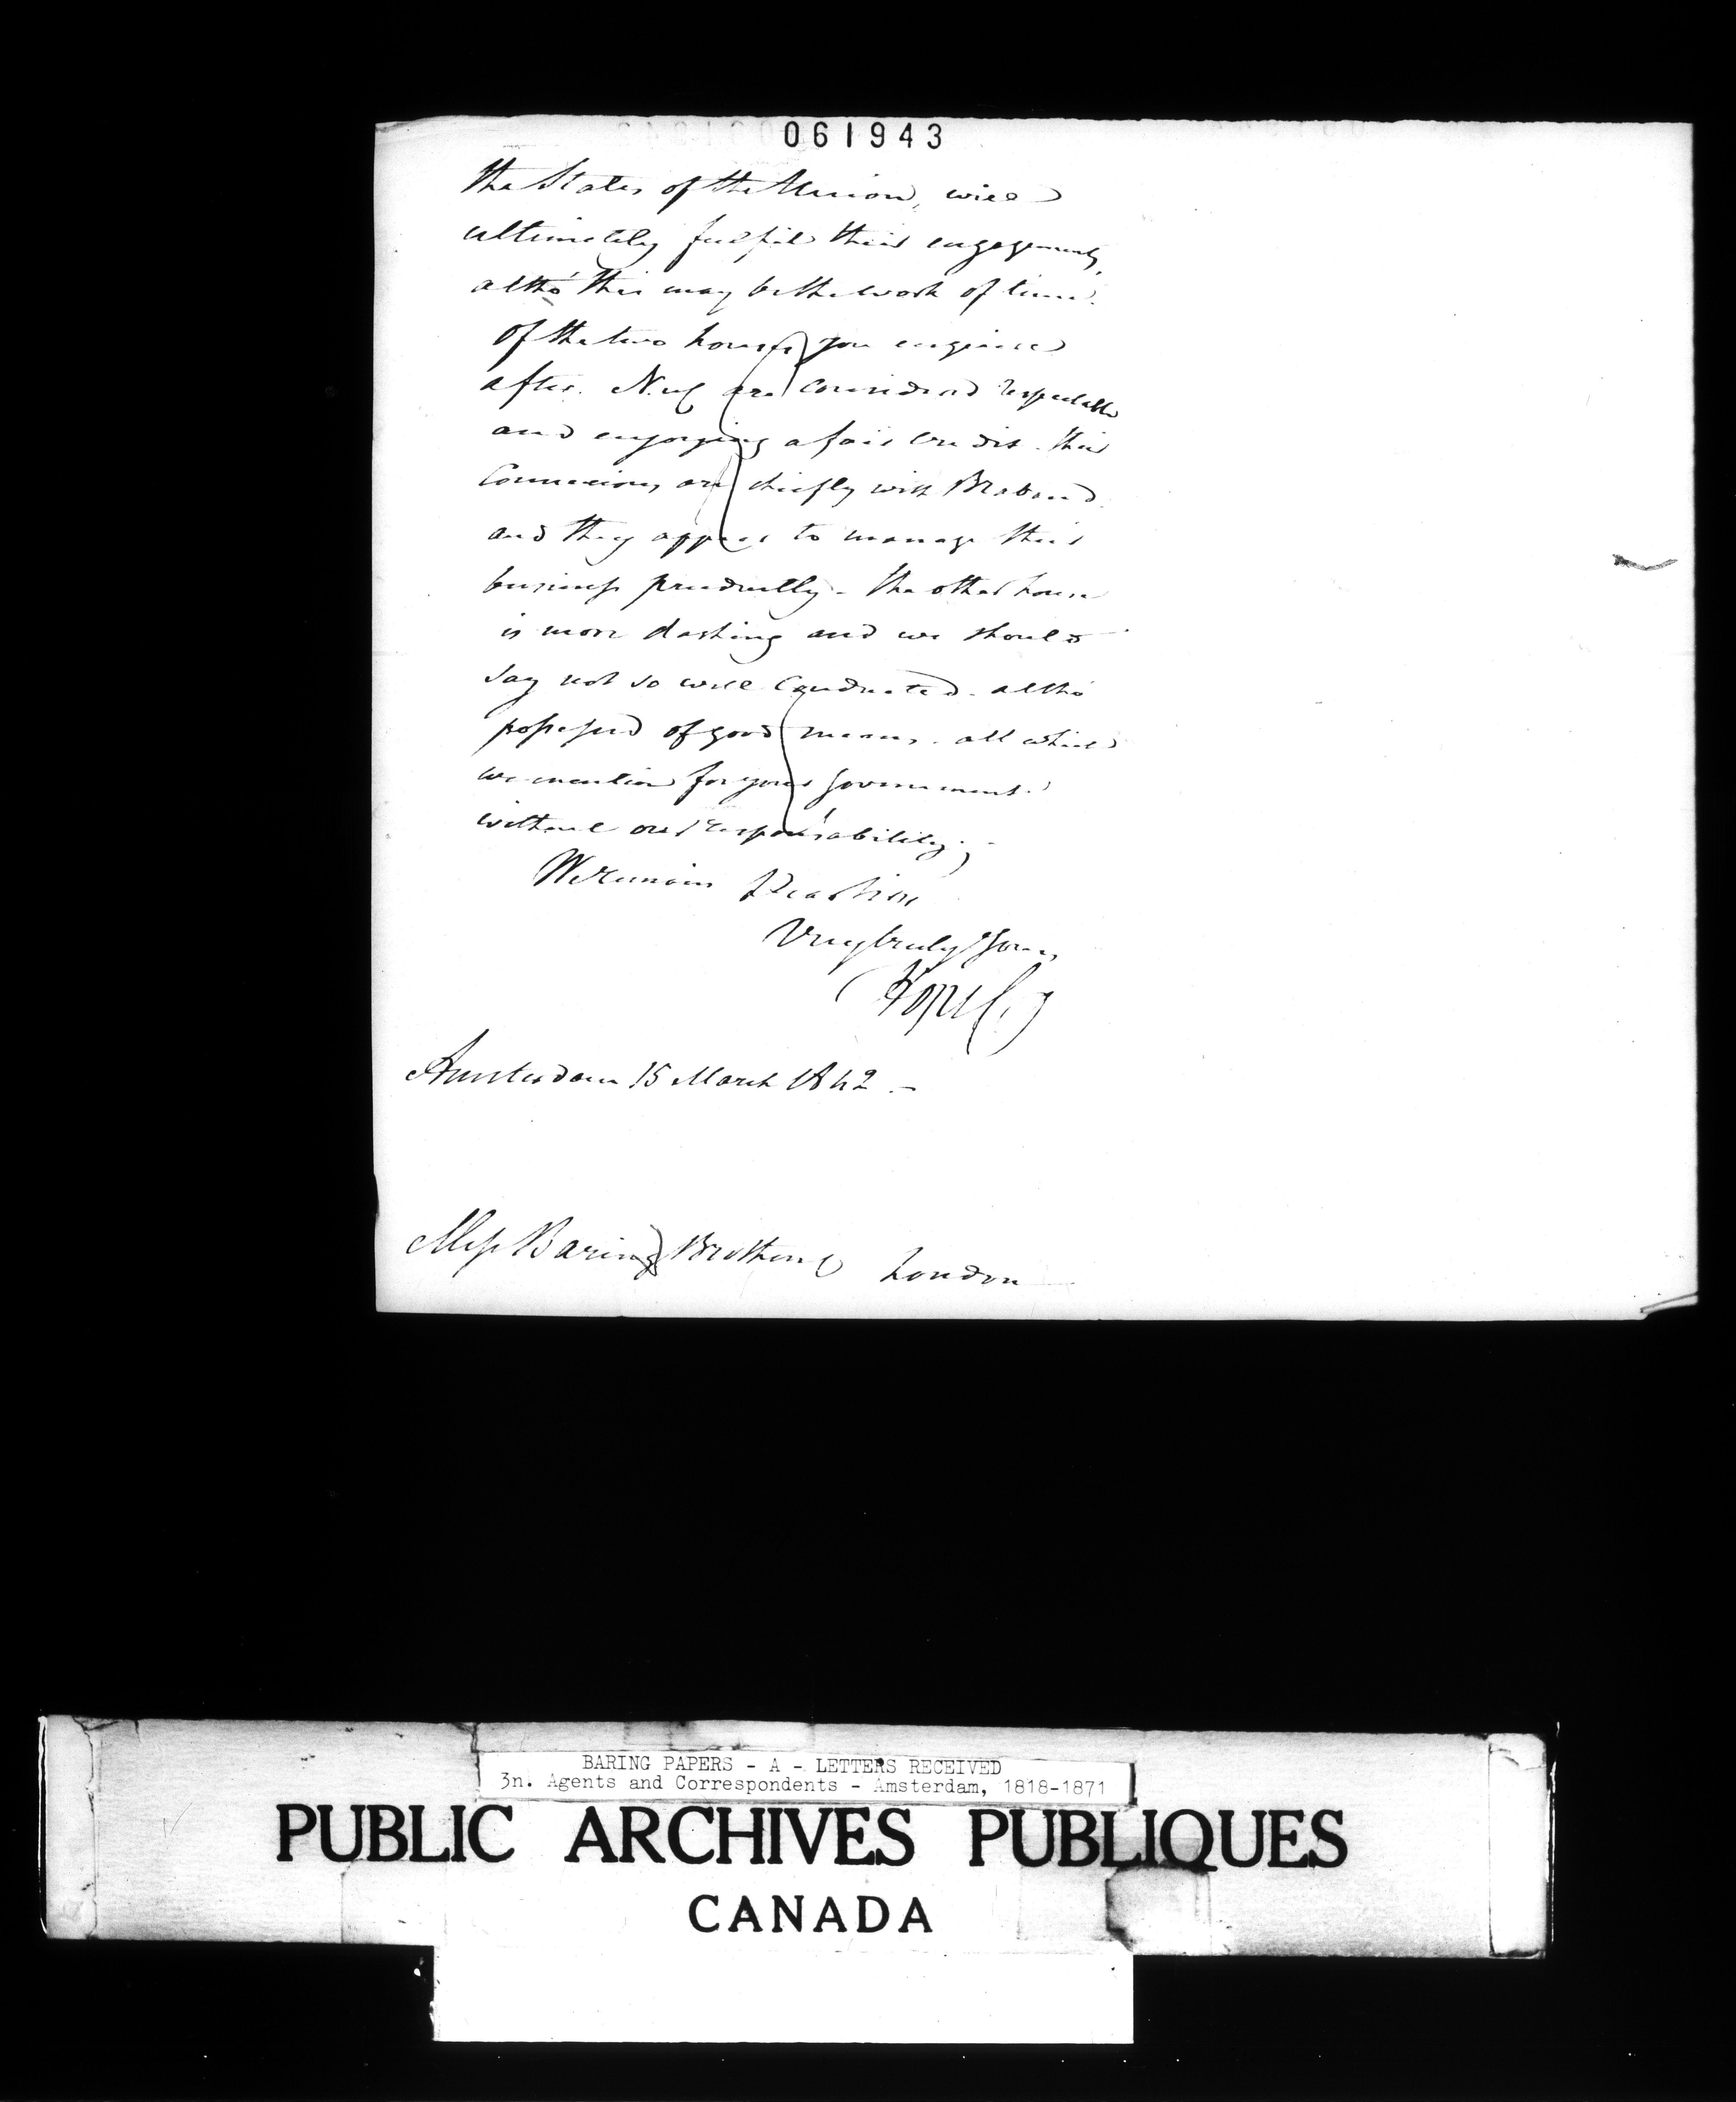 061943
the States of the Union, will
ultimately fulfil their engagements,
altho' this may be the work of time.
Of the two houses you enquire
after. N. & C are considered respectable
and enjoying a fair credit. their
Connexions are chiefly with Braband
and they appear to manage their
business prudently - the other house
is more dashing and we should
say not so well conducted. altho'
possessed of good means. all which
we mention for your government.
without our responsability. -
We remain Dear Sirs
Very truly Yours
Hope & Co
Amsterdam 15 March 1842 -
Mess Baring Brothers & London
BARING PAPERS - A - LETTERS RECEIVED
3n. Agents and Correspondents - Amsterdam, 1818-1871
PUBLIC ARCHIVES PUBLIQUES
CANADA